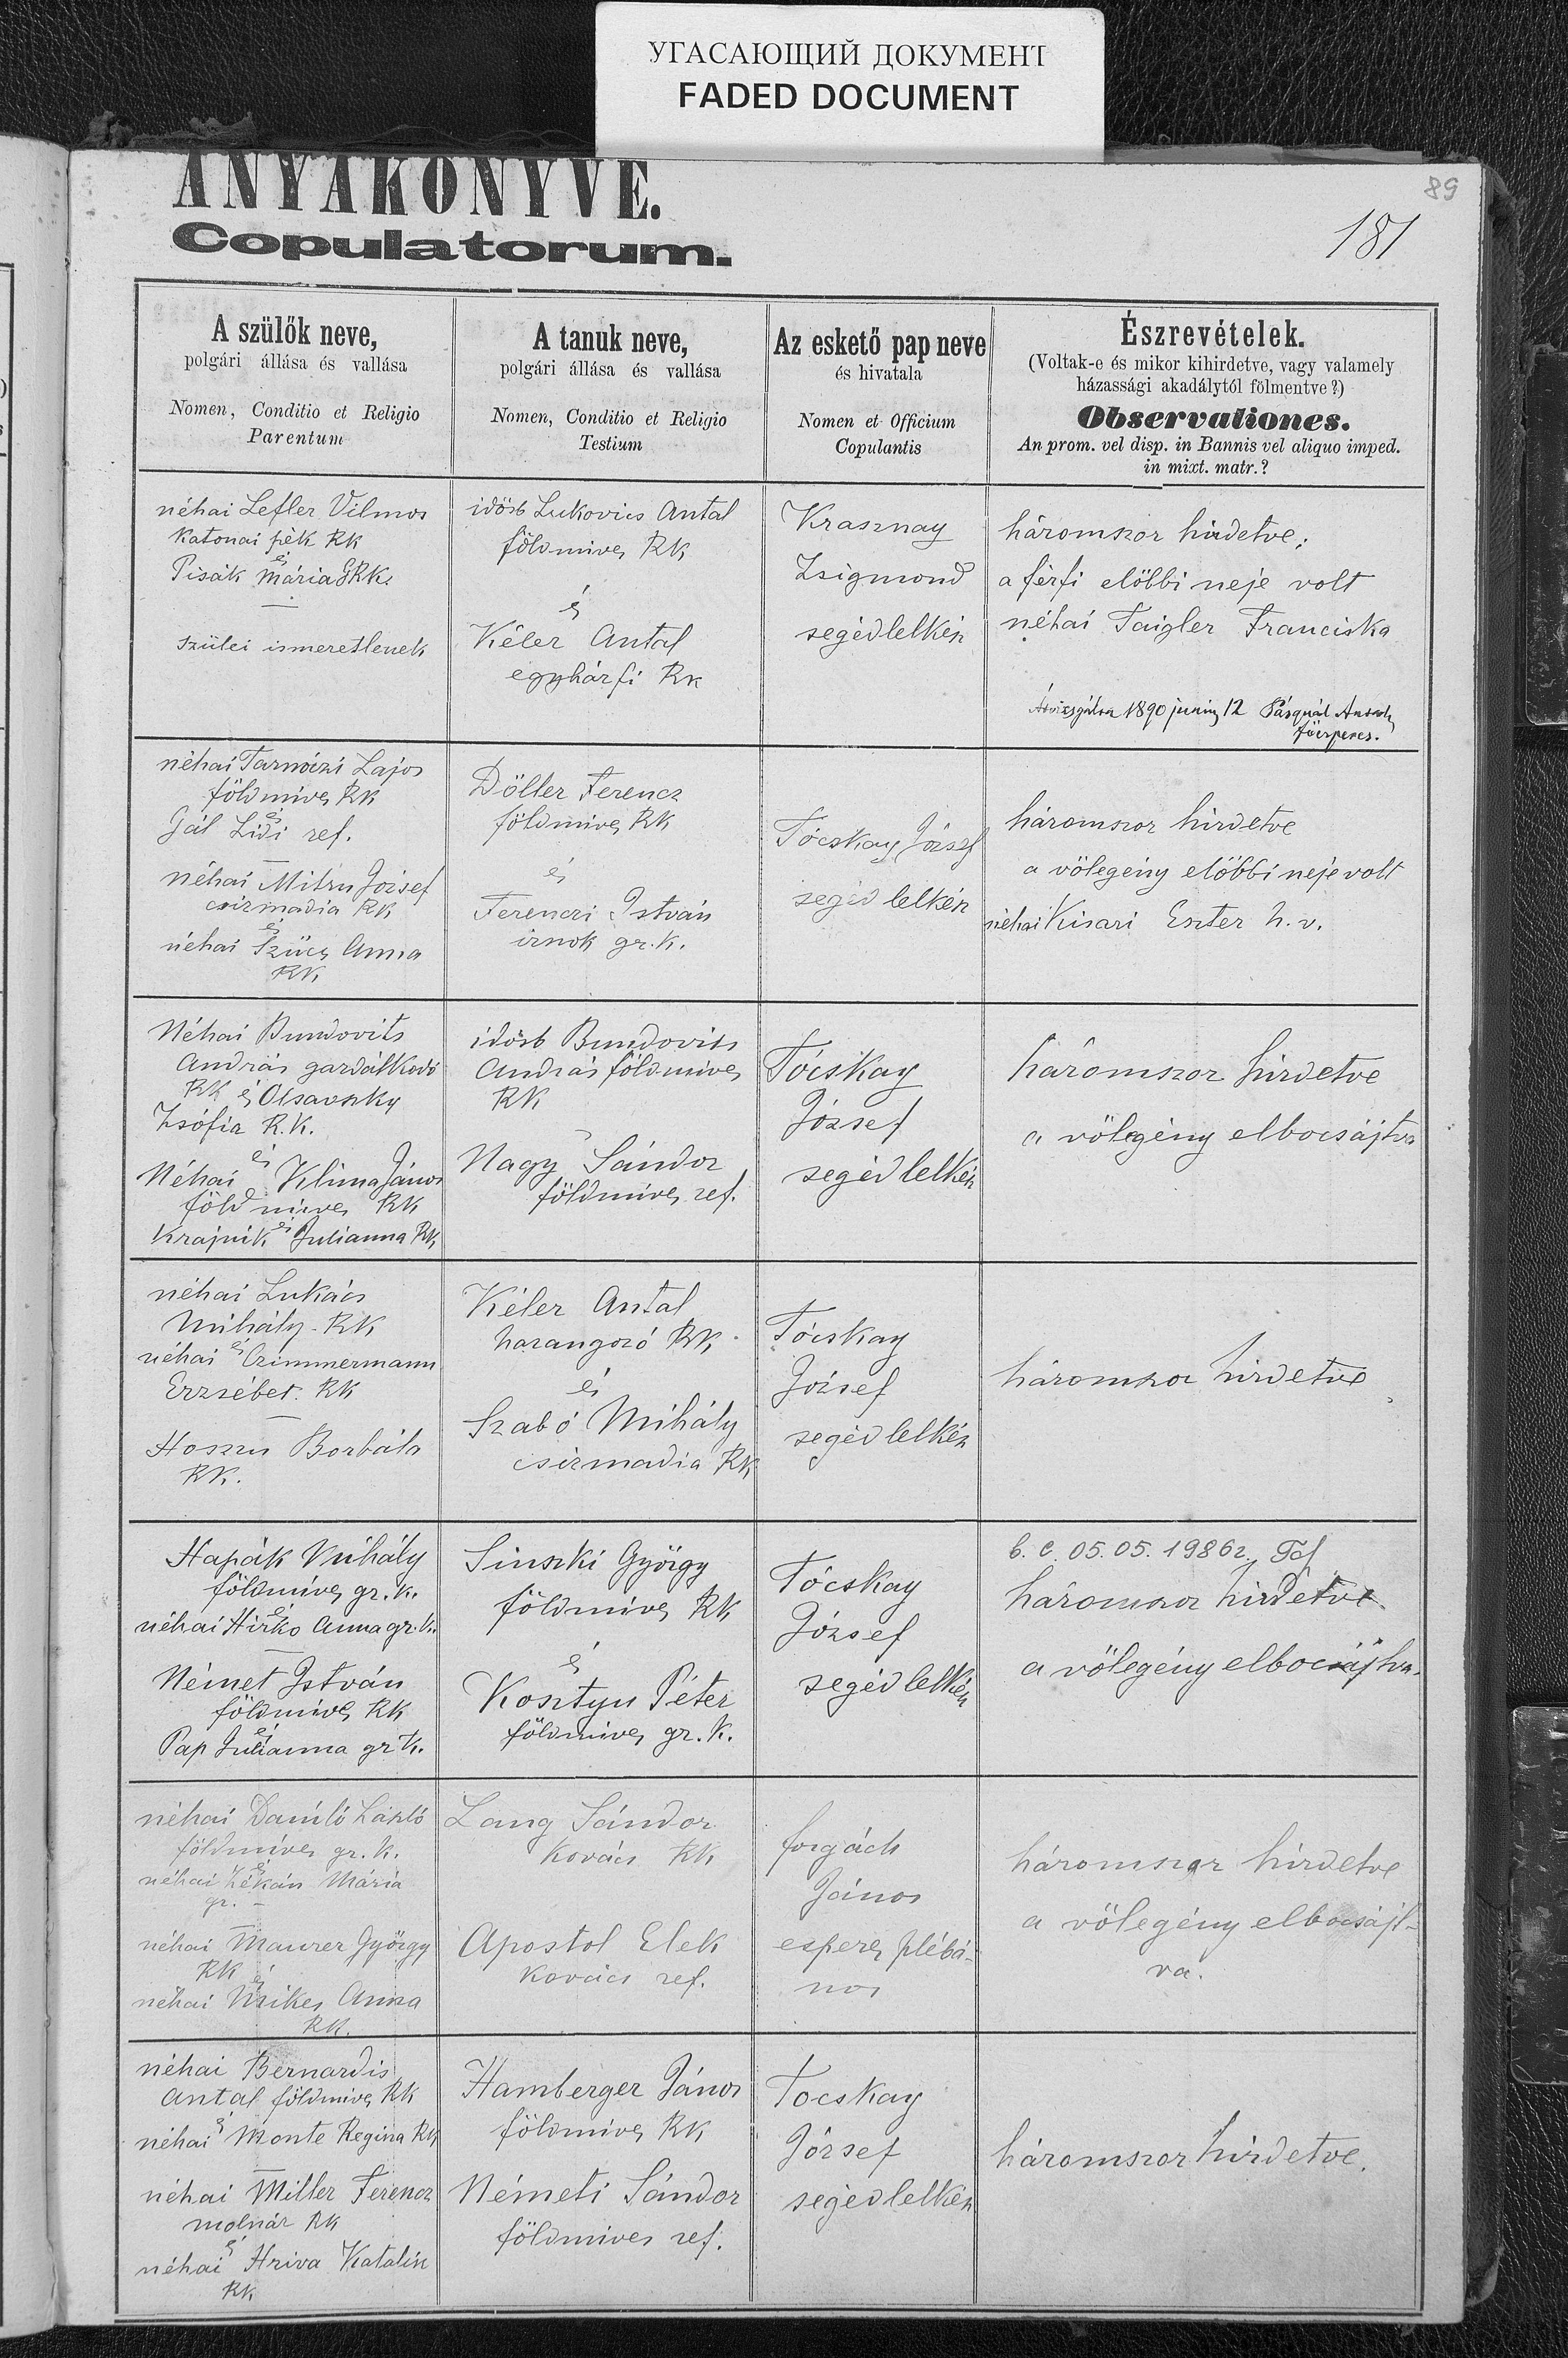 УГАСАЮЩИЙ ДОКУМЕНТ
FADED DOCUMENT
89
181
ANYAKÖNYVE.
Copulatorum.
A szülők neve,
polgári állása és vallása
Nomen, Conditio et Religio
Parentum
A tanuk neve,
polgári állása és vallása
Nomen, Conditio et Religio
Testium
Az eskető pap neve
és hivatala
Nomen et Officium
Copulantis
Észrevételek.
(Voltak-e és mikor kihirdetve, vagy valamely
házassági akadálytól fölmentve?)
Observationes.
An prom. vel disp. in Bannis vel aliquo imped.
in mixt. matr.?
néhai Lefler Vilmos
Katonai pék RK
és
Pisák Mária GRK.
szülei ismeretlenek
idősb Lukovics Antal
földmives RK
és
Kéler Antal
egyházfi RK
Krasznay
Zsigmond
segédlelkész
háromszor hirdetve;
a férfi előbbi neje volt
néhai Taigler Franciska
1890 junius 12 Pásquál
főesperes.
néhai Tarnóczi Lajos
földmives RK
és
Gál Lidi ref.
néhai Mitru József
csizmadia RK
és
néhai Szücs Anna
RK
Döller Ferencz
földmives RK
és
Ferenczi István
irnok gr. k.
Tócskay József
segédlelkész
háromszor hirdetve
a völegény előbbi neje volt
néhai Kisari Eszter h. v.
Néhai Bundovits
András gazdálkodó
RK és Olsavszky
Zsófia R.K.
és
Néhai Klima János
földmives RK
és
Krajnik Julianna RK
idősb Bundovits
András földmives
RK
Nagy Sándor
földmives ref.
Tócskay
József
segédlelkész
háromszor hirdetve
a völegény elbocsájtva
néhai Lukács
Mihály RK
és
néhai Czimmermann
Erzsébet. RK
Hoszu Borbála
RK.
Kéler Antal
harangozó RK
és
Szabó Mihály
csizmadia RK
Tócskay
József
segédlelkész
háromszor hirdetve
Hapák Mihály
földmives gr. k.
és
néhai Hirko Anna gr. k.
Német István
földmives RK
és
Pap Julianna gr k.
Sinszki György
földmives RK
és
Kosztyu Péter
földmives gr. k.
Tócskay
József
segédlelkész
b. c. 05. 05. 1986 r.
háromszor hirdetve.
a völegény elbocsájtva.
néhai Daniló László
földmives gr. k.
és
néhai Zékán Mária
gr. –
néhai Maurer György
RK
és
néhai Anna
RK.
Lang Sándor
Kovács RK
Apostol Elek
Kovács ref.
forgách
János
esperes plébá-
nos
háromszor hirdetve
a völegény elbocsájt-
va.
néhai Bernardis
Antal földmives RK
és
néhai Monte Regina RK
néhai Miller Ferencz
molnár RK
és
néhai Hriva Katalin
RK
Hamberger János
földmives RK
Németi Sándor
földmives ref.
Tocskay
József
segédlelkész
háromszor hirdetve.